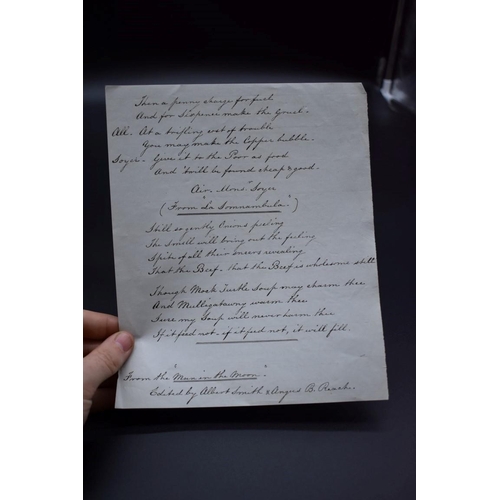 Then a penny charge for fuel
And for Sixpence make the Gruel.
All. At a trifling cost of trouble
You may make the Copper bubble.
Soyer. Give it to the Poor as food
And 'twill be found cheap & good.
Air. Mons Soyer
(From "La Somnambula")
Still so gently Onions peeling
The smell will bring out the feeling
Spite of all their sneers revealing
That the Beef - that the Beef is wholesome still
Though Mock Turtle Soup may charm thee
And Mulligatawny warm thee
Sure my Soup will never harm thee
If it feed not - if it feed not, it will fill.
From the "Man in the Moon".
Edited by Albert Smith & Angus B. Reach.